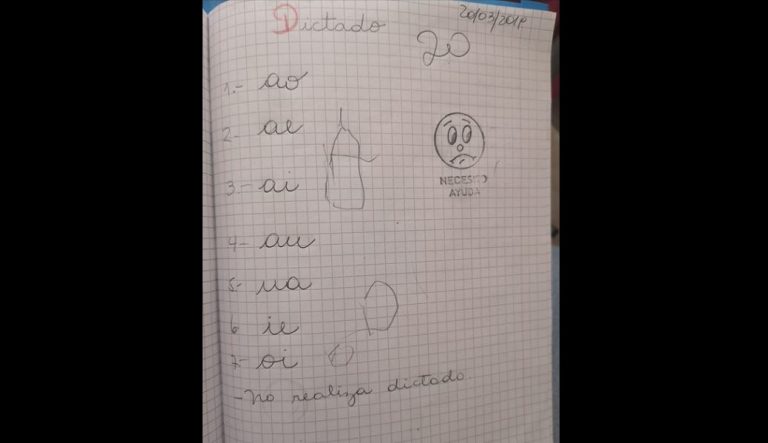 Dictado
20/03/2018
20
1.- ao
2- ae
3- ai
4- au
NECESITO
AYUDA
5- ua
6 ie
7- oi
- No realiza dictado